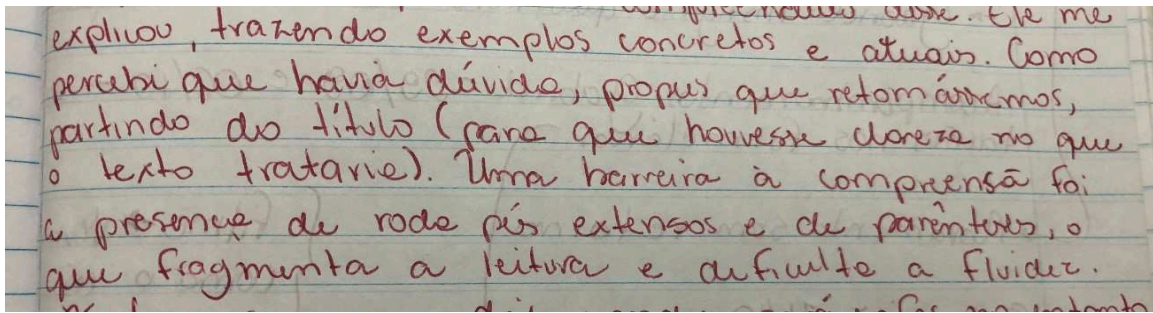 compreendido disse. Ele me
explicou, trazendo exemplos concretos e atuais. Como
percebi que havia dúvida, propus que retomássemos,
partindo do título (para que houvesse clareza no que
o texto trataria). Uma barreira à compreensã foi
a presença de roda pés extensos e de parênteses, o
que fragmenta a leitura e dificulta a fluidez.
no entanto